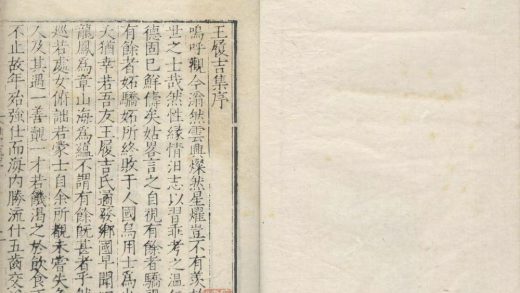 王履吉集序
嗚呼觀今滃然雲興燦然星耀豈不有羨
世之士哉然性緣情汩志以習乖考之温
德固已鮮儔矣姑畧言之自視有餘者驕視
有餘者妬驕妬所終收于人國烏用士為
天猶幸若吾友王履吉氏遒發鄉國早聞
龍鳳為章山海為蘊不謂有餘旣甚者乎
廵若處女俯詘若蒙士自余所觀未嘗失
人及其遇一善覩一才若饑渴之於飲食
不止故年殆強仕而海內勝流什五齒交